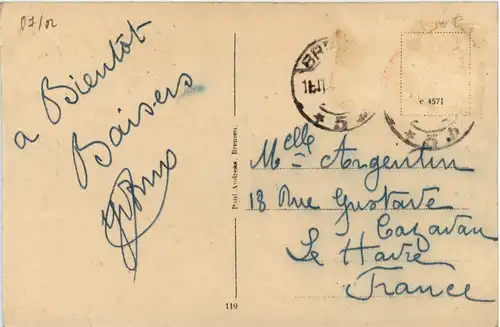 07/02
a Bientôt
Baisers
Paul Andreske, Bremen.
119
BR
* 5 *
c 4571
Melle Argentin
18 Rue Gustave
Cazavan
Le Havre
France